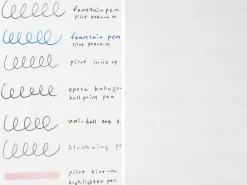 fountain pen
pilot kakuno m
fountain pen
pilot prera m
pilot juice up
ball point pen
uni-ball one
pilot
highlighter pen